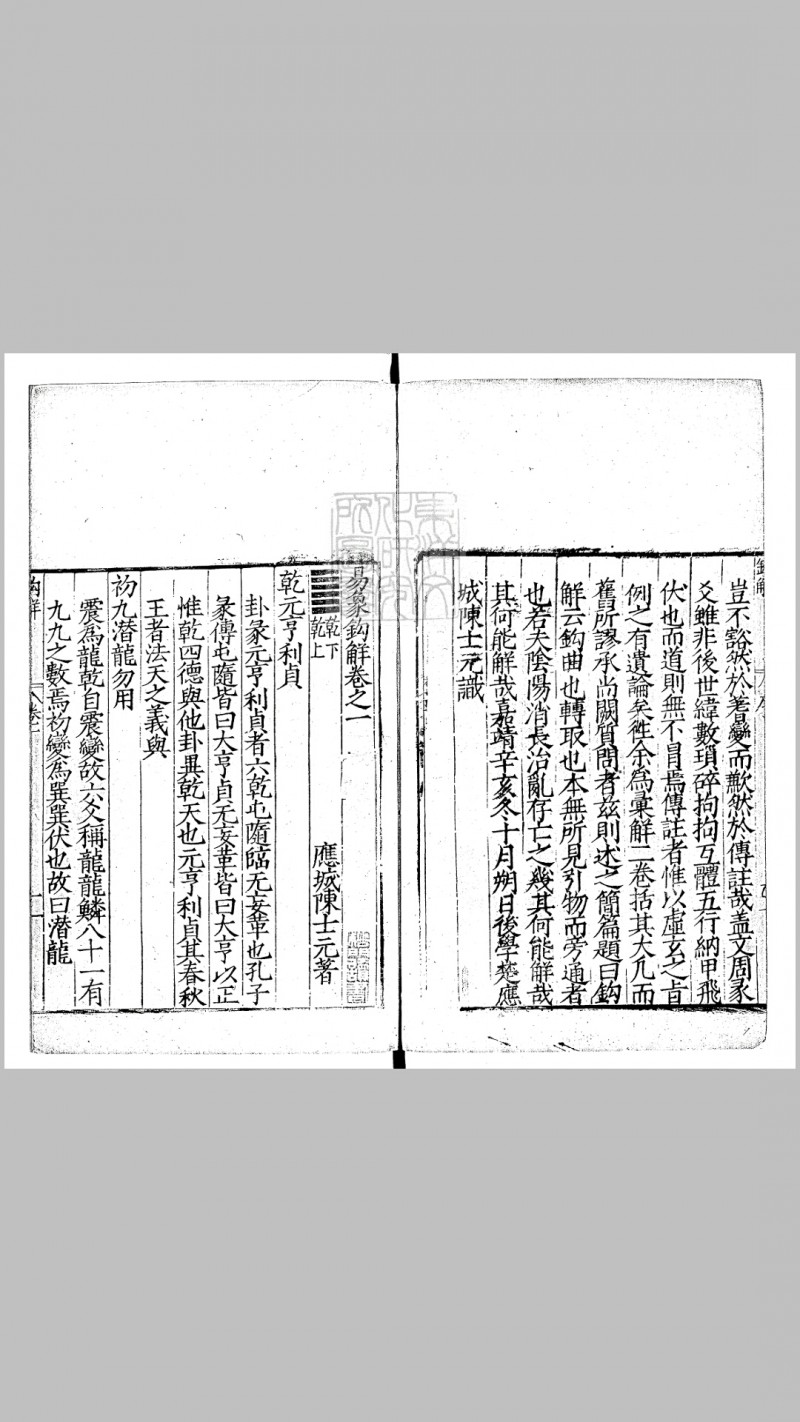 豈不豁然於蓍變而歉然於傳註哉盖文周彖
爻雖非後世緯數瑣碎拘拘互體五行納甲飛
伏也而道則無不冐焉傳註者惟以虛玄之㫖
例之有遺論矣徃余為彙解二卷括其大凢而
舊所謬承尚闕質問者玆則述之簡篇題曰鈎
解云鈎曲也轉取也本無所見引物而旁通者
也若夫陰陽消長治亂存亡之幾其何能解哉
其何能解哉嘉靖辛亥冬十月朔日後學楚應
城陳士元識
易象鈎解卷之一
應城陳士元著
乾下
乾上
乾元亨利貞
卦彖元亨利貞者六乾屯隨臨无妄革也孔子
彖傳屯隨皆曰大亨貞无妄革皆曰大亨以正
惟乾四德與他卦異乾天也元亨利貞其春秋
王者法天之義與
初九潛龍勿用
震為龍乾自震變故六爻稱龍龍鱗八十一有
九九之數焉初變為巽巽伏也故曰潛龍